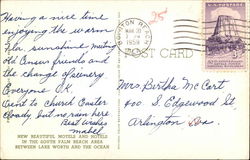 Having a nice time
enjoying the warm
Fla. sunshine meeting
old Conser friends and
the change of scenery
Everyone O.K.
Went to Church Easter
Cloudy but no rain here
Best Wishes
Mabel
NEW BEAUTIFUL MOTELS AND HOTELS
IN THE SOUTH PALM BEACH AREA
BETWEEN LAKE WORTH AND THE OCEAN
25
BOYNTON BEACH
MAR 30
1959
POST CARD
Mrs Bertha Mc Cart
S. Edgewood St
Arlington Va.